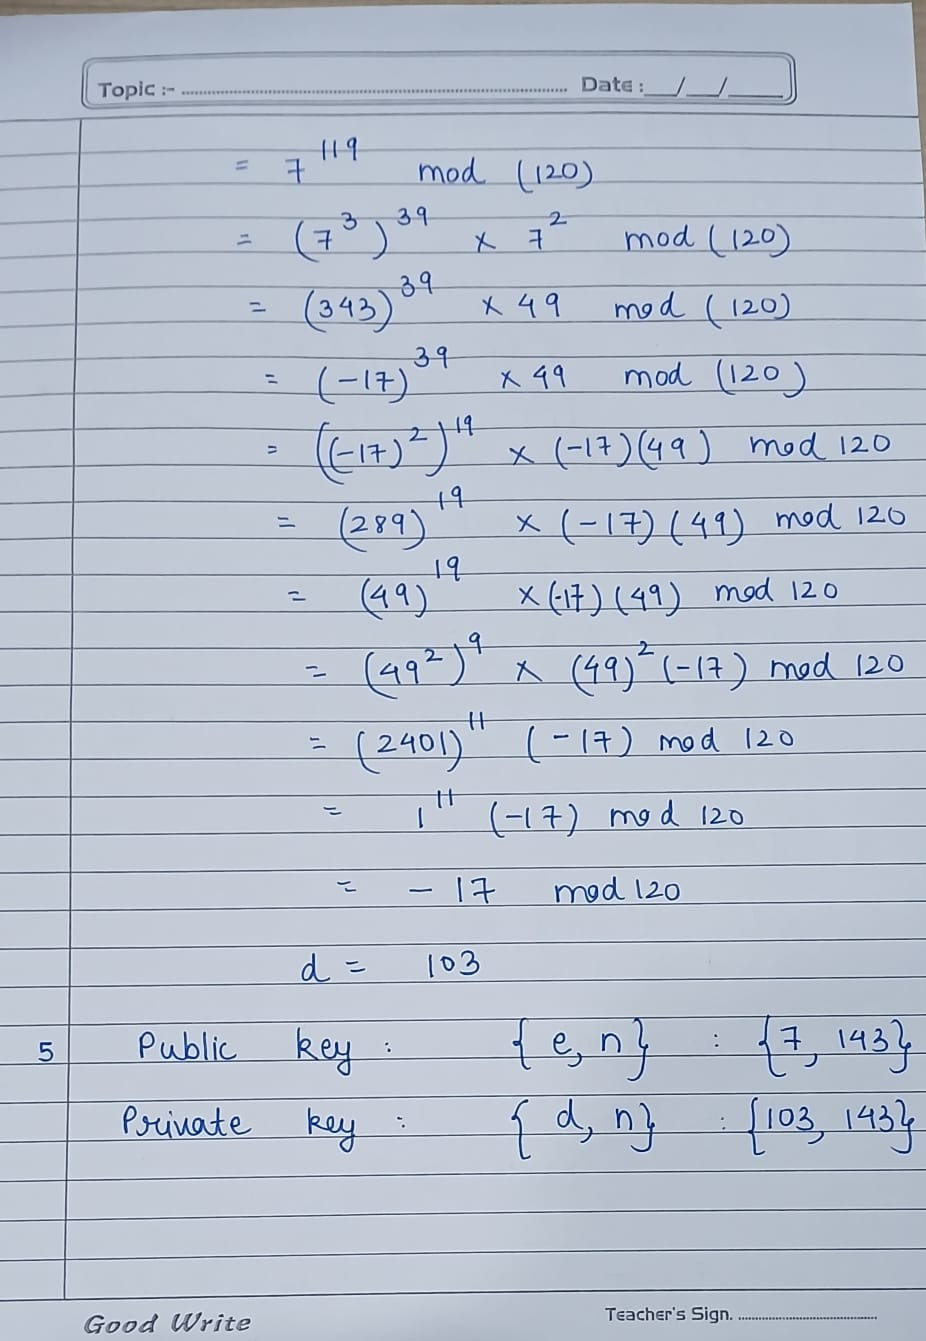 Topic :- Date : / /
= 7^119 mod (120)
= (7^3)^39 × 7^2 mod (120)
= (343)^39 × 49 mod (120)
= (-17)^39 × 49 mod (120)
= ((-17)^2)^19 × (-17)(49) mod 120
= (289)^19 × (-17)(49) mod 120
= (49)^19 × (-17)(49) mod 120
= (49^2)^9 × (49)^2 (-17) mod 120
= (2401)^11 (-17) mod 120
= 1^11 (-17) mod 120
= -17 mod 120
d = 103
5 Public key : {e, n} : {7, 143}
Private key : {d, n} : {103, 143}
Good Write Teacher's Sign.